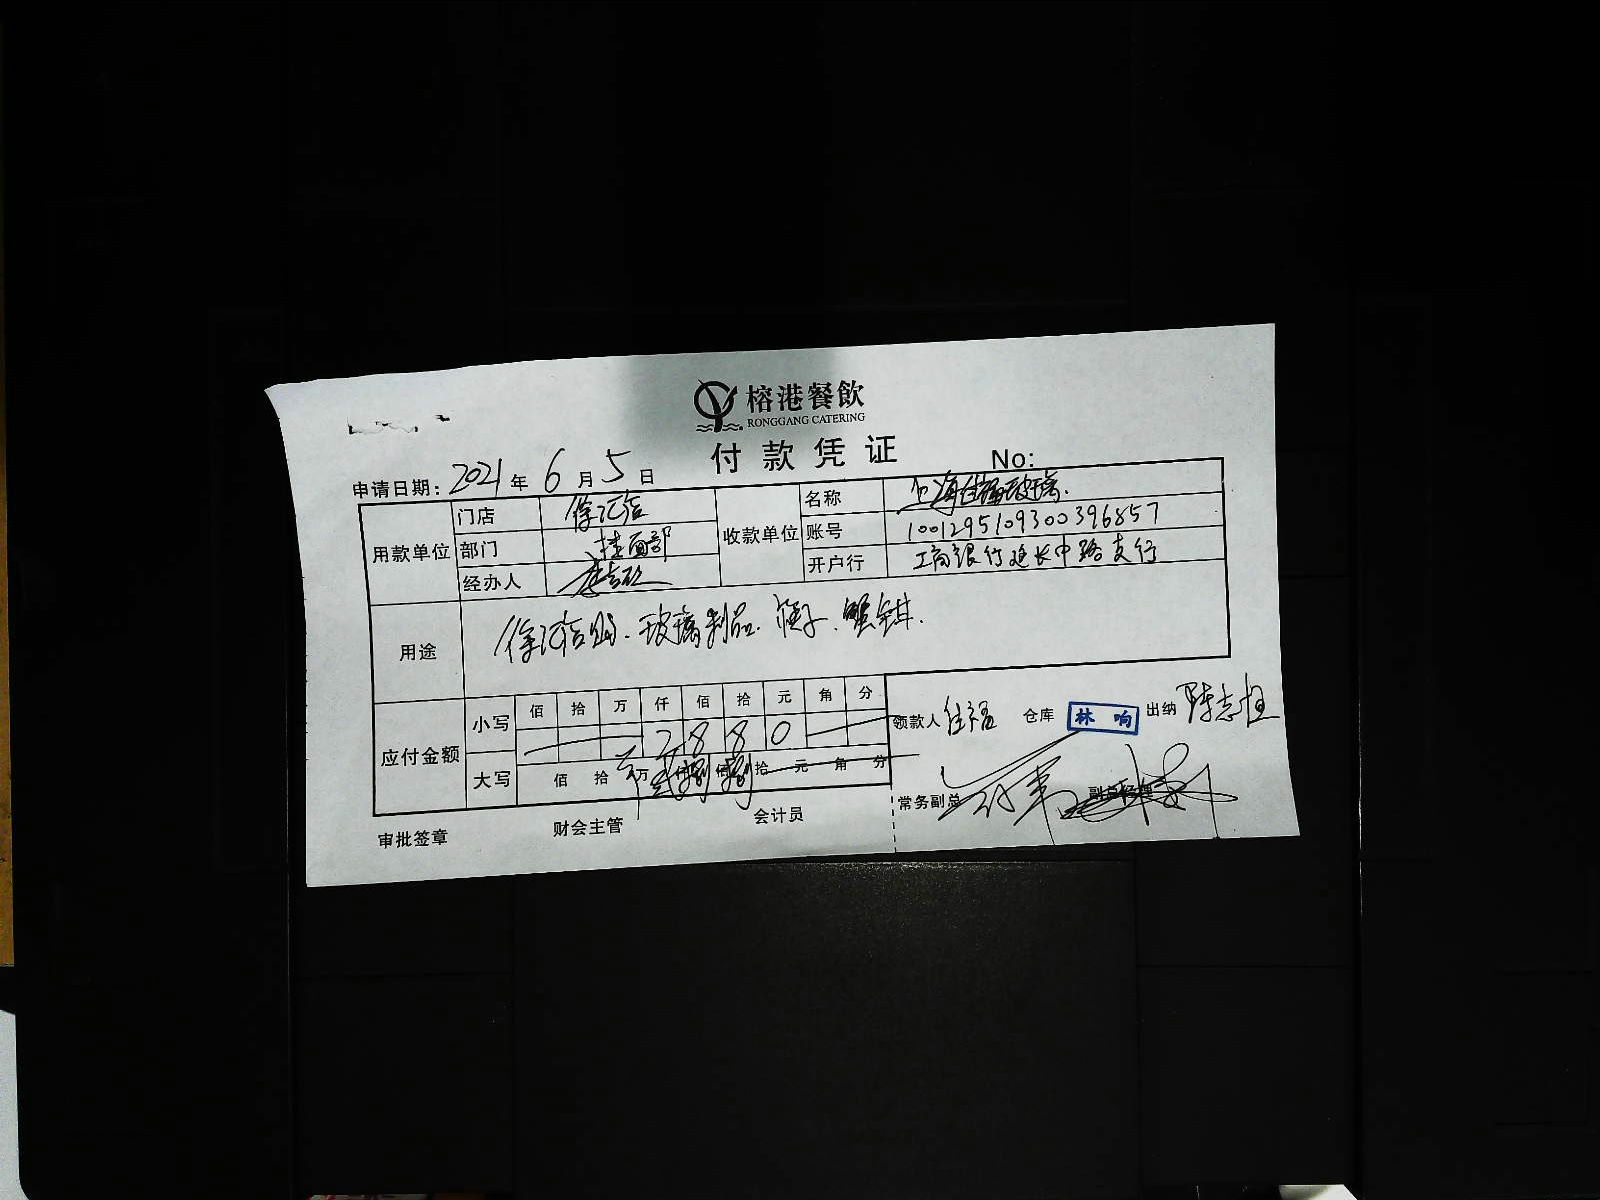 榕港餐飲
RONGGANG CATERING
付款凭证
申请日期: 2021 年 6 月 5 日 No:
用款单位 门店 徐汇店 收款单位 名称 上海佳福玻璃.
部门 楼面部 账号 1001295109300396857
经办人 开户行 工商银行延长中路支行
用途 徐汇店购.玻璃制品.筷子.蟹钳.
应付金额 小写 佰 拾 万 仟 佰 拾 元 角 分
2 8 8 0
大写 佰 拾 万 仟 佰 拾 元 角 分
领款人 佳福 仓库 林响 出纳 陈志恒
常务副总 副总经理
审批签章 财会主管 会计员